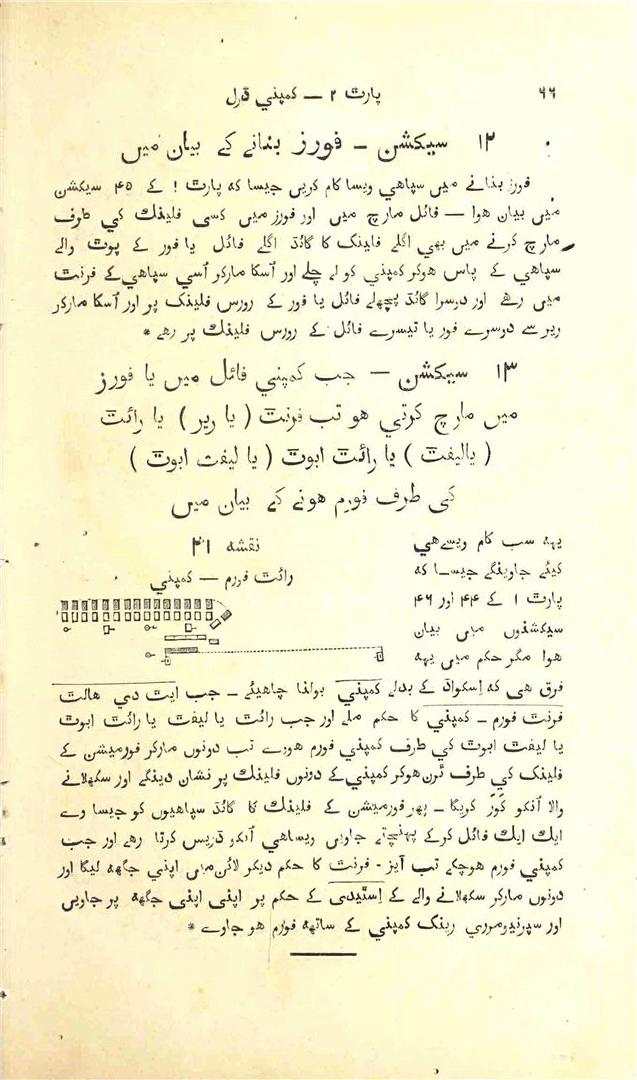 ۶۶
پارٹ ۲ — کمپنی ڈرل
۱۲ سیکشن — فورز بنانے کے بیان میں
فورز بنانے میں سپاھی ویسا کام کریں جیسا کہ پارٹ ۱ کے ۴۵ سیکشن
میں بیان ھوا — فائل مارچ میں اور فورز میں کسی فلینک کی طرف
مارچ کرنے میں بھی اگلے فلینک کا گائڈ اگلے فائل یا فور کے پوٹ والے
سپاھی کے پاس ھوکر کمپنی کو لے چلے اور اُسکا مارکر اُسی سپاھی کے فرنٹ
میں رھے اور دوسرا گائڈ پچھلے فائل یا فور کے رورس فلینک پر اور اُسکا مارکر
ریر سے دوسرے فور یا تیسرے فائل کے رورس فلینک پر رھے *
۱۳ سیکشن — جب کمپنی فائل میں یا فورز
میں مارچ کرتی ھو تب فرنٹ ( یا ریر ) یا رائٹ
( یالیفٹ ) یا رائٹ ابوٹ ( یا لیفٹ ابوٹ )
کی طرف فورم ھونے کے بیان میں
یہہ سب کام ویسے ھی
کیئے جاوینگے جیسا کہ
پارٹ ۱ کے ۴۴ اور ۴۶
سیکشنوں میں بیان
ھوا مگر حکم میں یہہ
نقشہ ۲۱
رائٹ فورم — کمپنی
فرق ھی کہ اِسکواڈ کے بدلے کمپنی بولنا چاھیئے — جب ایٹ دی ھالٹ
فرنٹ فورم — کمپنی کا حکم ملے اور جب رائٹ یا لیفٹ یا رائٹ ابوٹ
یا لیفٹ ابوٹ کی طرف کمپنی فورم ھووے تب دونوں مارکر فورمیشن کے
فلینک کی طرف ٹرن ھوکر کمپنی کے دونوں فلینک پر نشان دینگے اور سکھلانے
والا اُنکو کَوَر کریگا — پھر فورمیشن کے فلینک کا گائڈ سپاھیوں کو جیسا وے
ایک ایک فائل کرکے پہنچتے جاویں ویساھی اُنکو ڈریس کرتا رھے اور جب
کمپنی فورم ھوچکے تب آیز - فرنٹ کا حکم دیکر لائن میں اپنی جگھہ لیگا اور
دونوں مارکر سکھلانے والے کے اِسٹیڈی کے حکم پر اپنی اپنی جگھہ پر جاویں
اور سپرنیومرری رینک کمپنی کے ساتھہ فورم ھو جاوے *